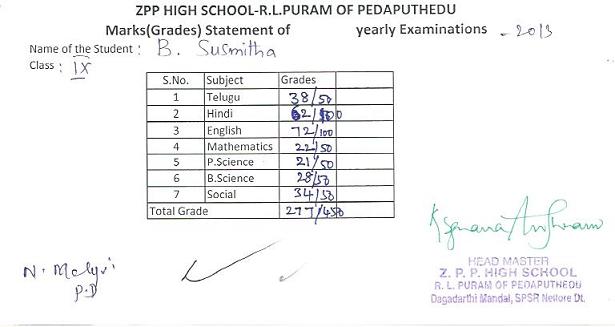 ZPP HIGH SCHOOL-R.L.PURAM OF PEDAPUTHEDU
Marks(Grades) Statement of yearly Examinations - 2013
Name of the Student : B. Susmitha
Class : IX
S.No. Subject Grades
1 Telugu 38/50
2 Hindi 62/100
3 English 72/100
4 Mathematics 22/50
5 P.Science 21/50
6 B.Science 28/50
7 Social 34/50
Total Grade 277/450
P.D
HEAD MASTER
Z. P. P. HIGH SCHOOL
R. L. PURAM OF PEDAPUTHEDU
Dagadarthi Mandal, SPSR Nellore Dt.